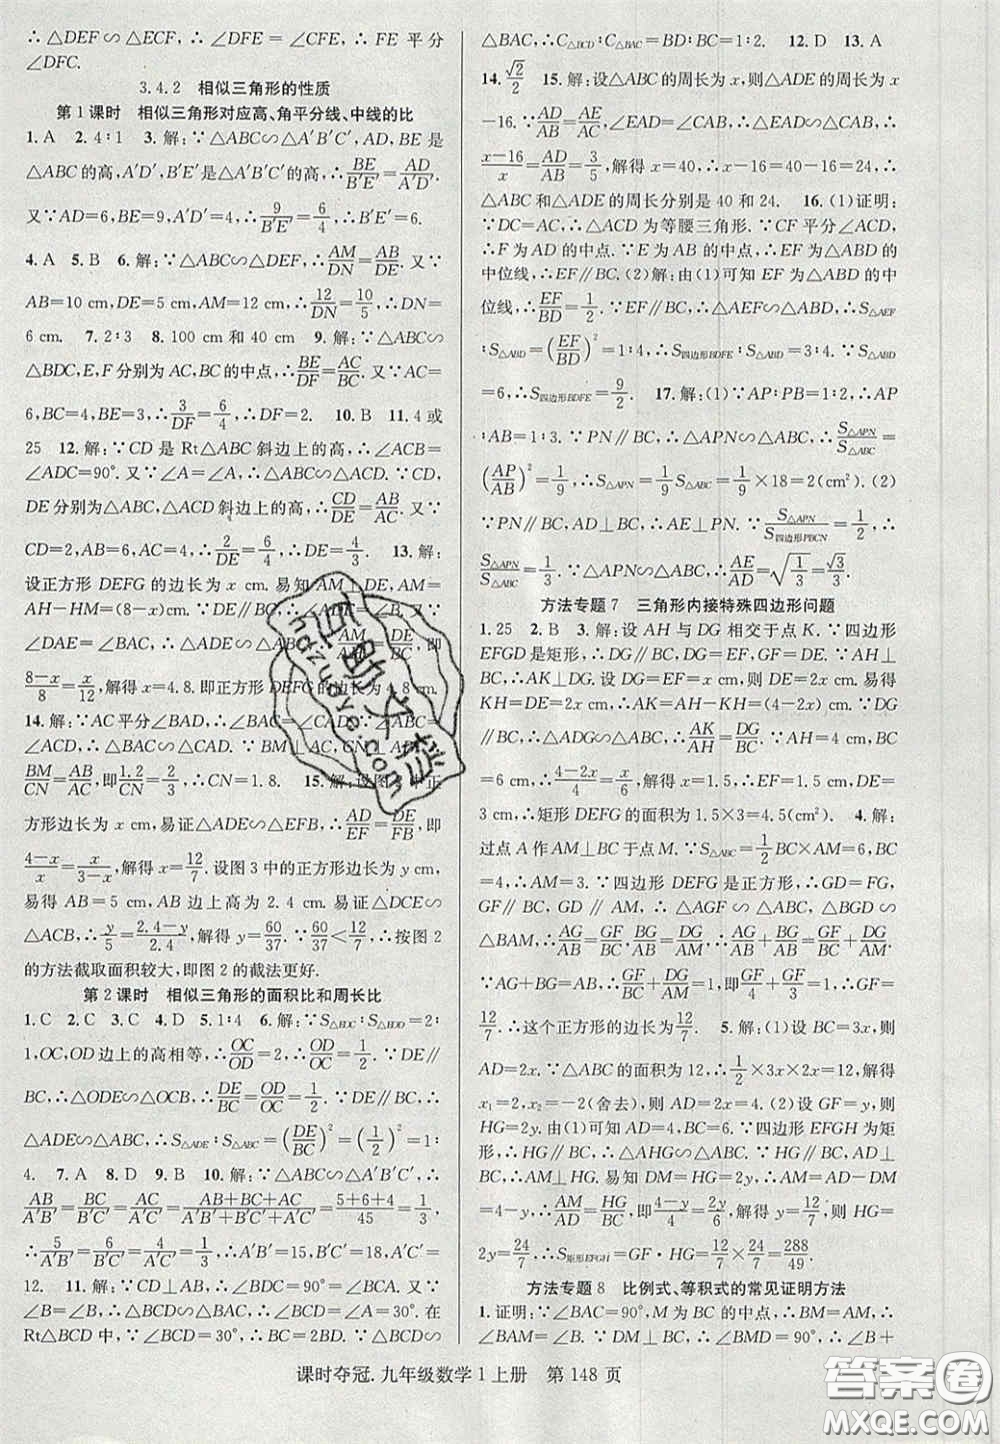 ∴△DEF∽△ECF, ∴∠DFE=∠CFE, ∴FE 平分
∠DFC.
3.4.2 相似三角形的性质
第1课时 相似三角形对应高、角平分线、中线的比
1. A 2. 4∶1 3. 解:∵△ABC∽△A′B′C′,AD,BE 是
△ABC 的高,A′D′,B′E′是△A′B′C′的高,∴BE/B′E′=AD/A′D′.
又∵AD=6,BE=9,A′D′=4,∴9/B′E′=6/4,∴B′E′=6.
4. A 5. B 6. 解:∵△ABC∽△DEF,∴AM/DN=AB/DE. 又∵
AB=10 cm,DE=5 cm,AM=12 cm,∴12/DN=10/5,∴DN=
6 cm. 7. 2∶3 8. 100 cm 和 40 cm 9. 解:∵△ABC∽
△BDC,E,F 分别为 AC,BC 的中点,∴BE/DF=AC/BC. 又∵AC=
6,BC=4,BE=3,∴3/DF=6/4,∴DF=2. 10. B 11. 4 或
25 12. 解:∵CD 是 Rt△ABC 斜边上的高,∴∠ACB=
∠ADC=90°. 又∵∠A=∠A,∴△ABC∽△ACD. ∵CD,
DE 分别为△ABC,△ACD 斜边上的高,∴CD/DE=AB/AC. 又∵
CD=2,AB=6,AC=4,∴2/DE=6/4,∴DE=4/3. 13. 解:
设正方形 DEFG 的边长为 x cm. 易知 AM=
AH−HM=(8−x)cm. 易证△ADE∽△ABC. ∵
∠DAE=∠BAC,∴ AM/AH=DE/BC,即
8−x/8=x/12,解得 x=4.8. 即正方形 DEFG 的边长为 4.8 cm.
14. 解:∵AC 平分∠BAD,∴∠BAC=∠CAD. ∵∠B=
∠D,∴△ABC∽△CAD. ∵BM⊥AC,CN⊥AD,∴
BM/CN=AB/AC,即1.2/CN=2/3,∴CN=1.8. 15. 解:设图 中正
方形边长为 x cm,易证△ADE∽△EFB,∴AD/EF=DE/FB,即
4−x/x=x/3−x,解得 x=12/7. 设图 3 中的正方形边长为 y cm,
易得 AB=5 cm,△ABC 的高为 2.4 cm. 易证△DCE∽
△ACB,∴y/5=2.4−y/2.4,解得 y=60/37. ∵60/37<12/7,∴按图 2
的方法截取面积较大,即图 2 的截法更好.
第2课时 相似三角形的面积比和周长比
1. C 2. C 3. C 4. D 5. 1∶4 6. 解:∵S△BDC∶S△EDD=2∶
1,OC,OD 边上的高相等,∴OC/OD=2,∴OD/OC=1/2. ∵DE∥
BC,∴△ODE∽△OCB,∴DE/BC=OD/OC=1/2. ∵DE∥BC,∴
△ADE∽△ABC,∴S△ADE∶S△ABC=(DE/BC)²=(1/2)²=1∶
4. 7. A 8. D 9. B 10. 解:∵△ABC∽△A′B′C′,∴
AB/A′B′=BC/B′C′=AC/A′C′=AB+BC+AC/A′B′+B′C′+A′C′=5+6+4/45=1/3,
∴5/A′B′=6/B′C′=4/A′C′=1/3,∴A′B′=15,B′C′=18,A′C′=
12. 11. 解:∵CD⊥AB,∴∠BDC=90°=∠BAC. 又∵
∠B=∠B,∴△BCD∽△BAC,∴∠BCD=∠A=30°. 在
Rt△BCD 中,∵∠BCD=30°,∴BC=2BD. ∵△BCD∽
△BAC,∴C△BCD∶C△BAC=BD∶BC=1∶2. 12. D 13. A
14. √2/2 15. 解:设△ABC 的周长为 x,则△ADE 的周长为 x
−16. ∵AD/AB=AE/AC,∠EAD=∠CAB,∴△ABC∽△ADE,∴
x−16/x=AD/AB=3/5,解得 x=40,∴x−16=40−16=24,∴
△ABC 和△ADE 的周长分别是 40 和 24. 16. (1)证明:
∵DC=AC,∴△ACD 为等腰三角形. ∵CF 平分∠ACD,
∴F 为 AD 的中点. ∵E 为 AB 的中点,∴EF 为△ABD 的
中位线,∴EF∥BC. (2)解:由(1)可知 EF 为△ABD 的中
位线,∴EF/BD=1/2. ∵EF∥BC,∴△AEF∽△ABD,∴S△AEF
∶S△ABD=(EF/BD)²=1∶4,∴S四边形BDFE=3/4S△ABD. ∵S△ABD
=6,∴S四边形BDFE=9/2. 17. 解:(1)∵AP∶PB=1∶2,∴AP
∶AB=1∶3. ∵PN∥BC,∴△APN∽△ABC,∴S△APN/S△ABC=
(AP/AB)²=1/9,∴S△APN=1/9S△ABC=1/9×18=2(cm²). (2)
∵PN∥BC,AD⊥BC,∴AE⊥PN. ∵S△APN/S四边形PBCN=1/2,∴
S△APN/S△ABC=1/3. ∵△APN∽△ABC,∴AE/AD=√1/3=√3/3.
方法专题7 三角形内接特殊四边形问题
1. 25 2. B 3. 解:设 AH 与 DG 相交于点 K. ∵四边形
EFGD 是矩形,∴DG∥BC,DE⊥BC,GF⊥BC. ∵AH⊥
BC,∴AK⊥DG. 设 DE=x cm,则 DG=2x cm. 易得
KH=DE=x cm,∴AK=AH−KH=(4−x)cm. ∵DG
∥BC,∴△ADG∽△ABC,∴AK/AH=DG/BC. ∵AH=4 cm,BC
=6 cm,∴4−x/4=2x/6,解得 x=12/7,∴DE=
cm,∴矩形 DEFG 的面积为 1.5×3=4.5(cm²). 4. 解:
过点 A 作 AM⊥BC 于点 M. ∵S△ABC=1/2BC·AM=12,BC=8,
∴AM=3. ∵四边形 DEFG 是正方形,∴GD=FG,
GF∥BC,GD∥AM,∴△AGF∽△ABC,△BGD∽
△BAM,∴AG/AB=GF/BC,BG/AB=DG/AM,∴AG/AB+BG/AB=GF/BC+DG/AM
∵AG/AB+BG/AB=1,∴GF/BC+DG/AM=1,即
12/7. ∴这个正方形的边长为12/7. 5. 解:(1)设 BC=3x,则
AD=2x. ∵△ABC 的面积为 12,∴1/2×3x×2x=12,解得
x₁=2,x₂=−2(舍去),则 AD=2x=4. (2)设 GF=y,则
HG=2y. 由(1)知 AD=4,BC=6. ∵四边形 EFGH 为矩
形,∴HG∥BC,∴△AHG∽△ABC. ∵HG∥BC,AD⊥
BC,∴AM⊥HG. 易得 DM=HG=y,∴AM=AD−DM=4−y,
∴AM/AD=HG/BC,即4−y/4=2y/6,解得 y=12/7,∴HG=
2y=24/7,∴S矩形EFGH=GF·HG=12/7×24/7=288/49.
方法专题8 比例式、等积式的常见证明方法
1. 证明:∵∠BAC=90°,M 为 BC 的中点,∴BM=AM,∴
∠BAM=∠B. ∵∠BAC=90°,∴∠B+
课时夺冠. 九年级数学1上册 第 148 页
互助文档
hdzuoye.com
答案圈
MXQE.COM